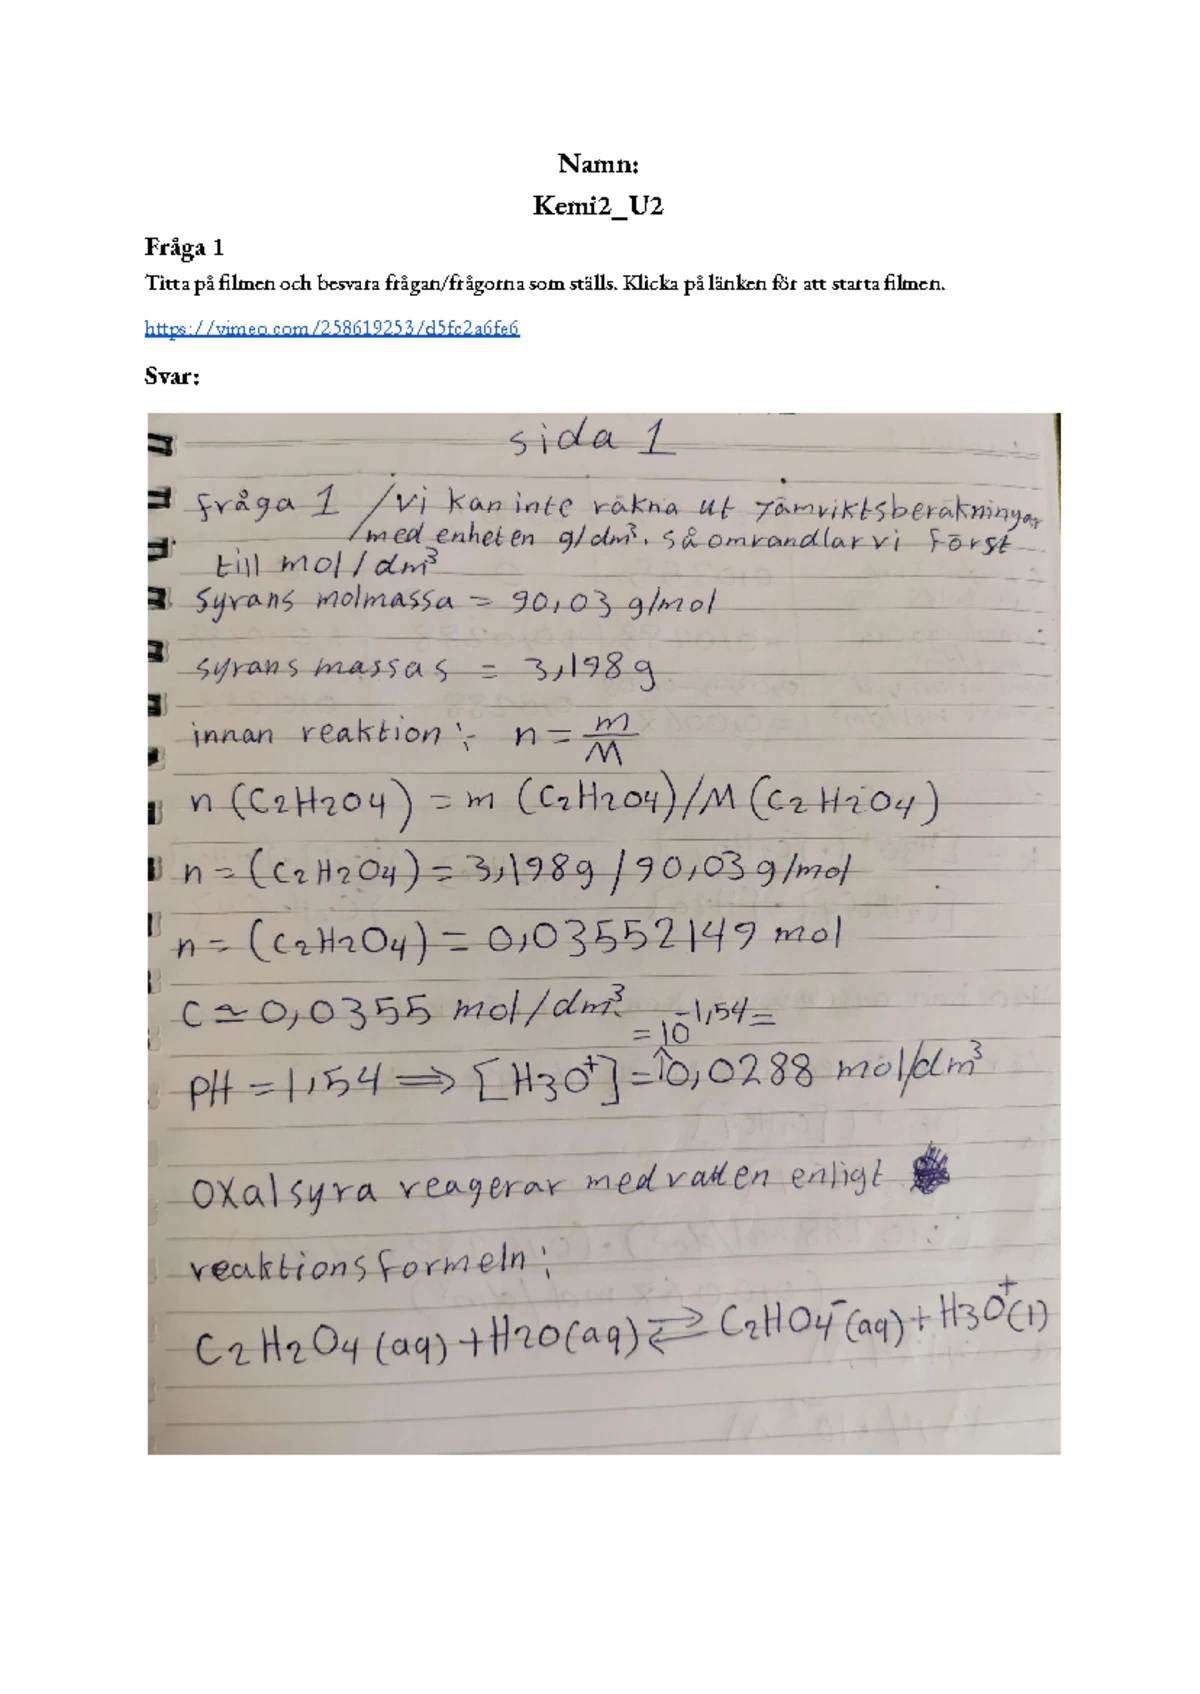 Namn:
Kemi2_U2
Fråga 1
Titta på filmen och besvara frågan/frågorna som ställs. Klicka på länken för att starta filmen.
https://vimeo.com/258619253/d5fc2a6fe6
Svar:
sida 1
fråga 1 /vi kan inte räkna ut jämviktsberäkningar
/med enheten g/dm³. så omvandlar vi först
till mol/dm³
Syrans molmassa = 90,03 g/mol
syrans massas = 3,198g
innan reaktion: n = m/M
n (C2H2O4) = m (C2H2O4)/M (C2H2O4)
n = (C2H2O4) = 3,198g / 90,03 g/mol
n = (C2H2O4) = 0,03552149 mol
C ≃ 0,0355 mol/dm³
= 10^-1,54 =
pH = 1,54 ⇒ [H3O⁺] = 0,0288 mol/dm³
Oxalsyra reagerar med vatten enligt
reaktionsformeln:
C2H2O4 (aq) + H2O (aq) ⇄ C2HO4⁻ (aq) + H3O⁺(l)